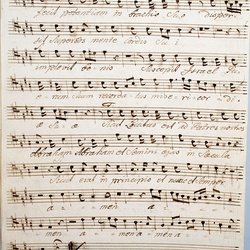 fecit potentiam in brachio Suo dispersit
Superbos mente Cordis Sui
implevit bo nis Suscepit Israel Pu
e rum suum recorda tus mise ri cor di
a Su a Sicut Locutus est ad Patres nostros
Abraham Abraham et Semini ejus in Saecula
Sicut erat in principio et nunc et Semper
men a - - - - men a -
men a - - men a - men a -